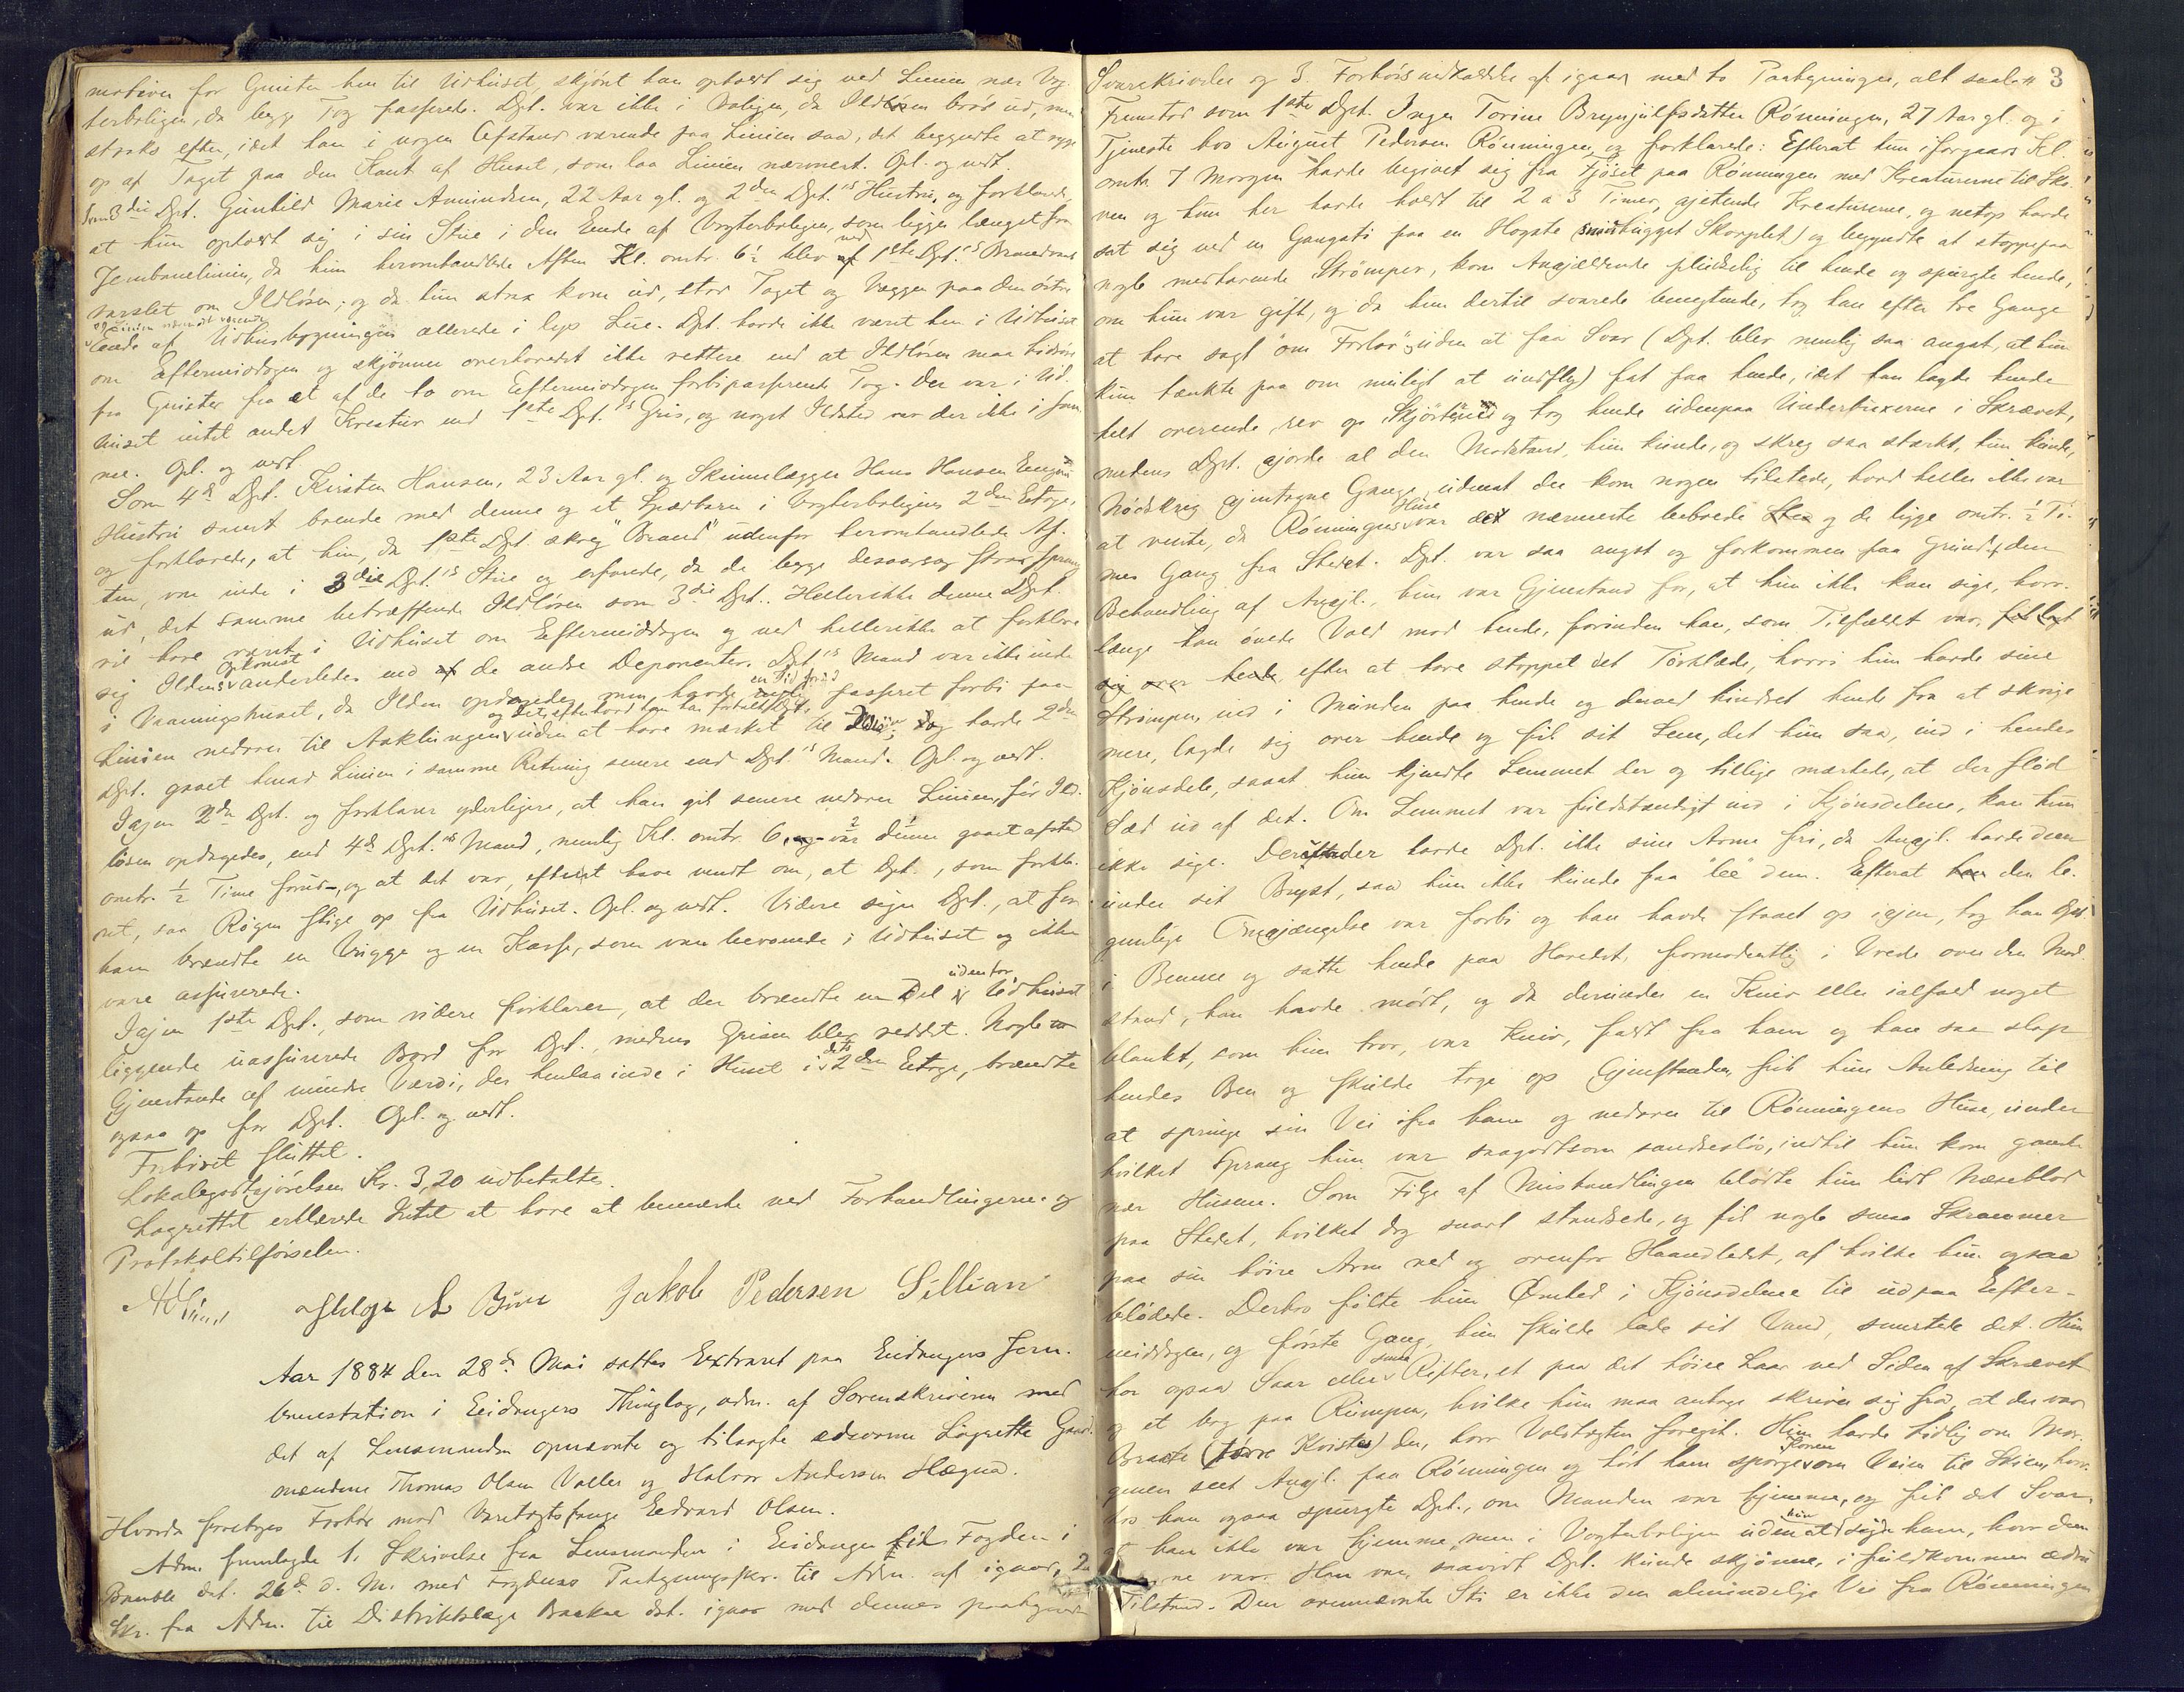 motiver for Gnister hen til Udhuset, skjønt han opholdt sig ved Linien nær Vog-
terboligen, da begge Tog passerede. Dpt. var ikke i Boligen, da Ildløsen brød ud, men
straks efter, idet han i nogen Afstand værende paa Linien saa, det begyndte at ryge
op af Taget paa den Kant af Huset, som laa Linien nærmest. Opl. og vedt.
Som 3die Dpt. Gunhild Marie Amundsen, 22 Aar gl. og 2den Dpt.'s Hustru, og forklarede,
at hun opholdt sig i sin Stue i den Ende af Vogterboligen, som ligger længst fra
Jernbanelinien, da hun heromhandlede Aften Kl. omtr. 6½ blev ved 1ste Dpt.'s Brandraab
varslet om Ildløsen; og da hun strax kom ud, stod Taget og Væggen paa den østre
og Linien nærmest værende
Ende af Udhusbygningen allerede i lys Lue. Dpt. havde ikke været hen i Udhuset
om Eftermiddagen og skjønner overhovedet ikke rettere end at Ildløsen maa hidrøre
fra Gnister fra et af de to om Eftermiddagen forbipasserende Tog. Der var i Ud-
huset intet andet Kreatur end 1ste Dpt.'s Gris, og noget Ildsted var der ikke i sam-
me. Opl. og vedt
Som 4de Dpt. Kirsten Hansen, 23 Aar gl. og Skinnelægger Hans Hansen
Hustru samt boende med denne og et Spædbarn i Vogterboligens 2den Etage,
og forklarede, at hun, da 1ste Dpt. skreg "Brand" udenfor heromhandlede Af-
ten, var inde i 3die Dpt.'s Stue og erfarede, da de begge desaarsag strax sprang
ud, det samme betræffende Ildløsen som 3die Dpt. Hellerikke denne Dpt.
vil have været i Udhuset om Eftermiddagen og ved hellerikke at forklare
sig Ildens Opkomst anderledes end de andre Deponenter. Dpt's Mand var ikke inde
i Vaaningshuset, da Ilden opdagedes, men havde en Tid forud passeret forbi paa
Linien nedover til Aaklungen og det, efterhvad han har fortalt Dpt., uden at have mærket til Ildløs; dog havde 2den
Dpt. gaaet henad Linien i samme Retning senere end Dpt's Mand. Opl. og vedt.
Igjen 2den Dpt. og forklarer yderligere, at han gik senere nedover Linien, før Ild-
løsen opdagedes, end 4de Dpt.'s Mand, nemlig Kl. omtr. 6, var denne gaaet afsted
omtr. ½ Time forud, og at det var, efterat have vendt om, at Dpt., som forkla-
ret, saa Røgen stige op fra Udhuset. Opl. og vedt. Videre siger Dpt., at for
ham brændte en Vugge og en Kasse, som var beroende i Udhuset og ikke
vare assurerede.
Igjen 1ste Dpt., som videre forklarer, at der brændte en Del udenfor Udhuset
liggende uassurerede Bord for Dpt., medens Grisen blev reddet. Nogle
Gjenstande af mindre Værdi, der henlaa inde i Huset i dets 2den Etage, brændte
ogsaa op for Dpt. Opl. og vedt.
Forhøret sluttet.
Lokalegodtgjørelsen Kr. 3,20 udbetaltes.
Lagrettet erklærede Intet at have at bemærke ved Forhandlingerne og
Protokoltilførselen.
Jakob Pedersen Sillian
Aar 1884 den 28de Mai sattes Extraret paa Eidangers Jern-
banestation i Eidangers Thinglag, adm. af Sorenskriveren med
det af Lensmanden opnævnte og tilsagte edsvorne Lagrette Gaard-
mændene Thomas Olsen Valler og Halvor Andersen Hægna.
Hvorda foretoges Forhør mod Varetægtsfange Edvard Olsen.
Adm. fremlagde 1. Skrivelse fra Lensmanden i Eidanger til Fogden i
Bamble dat. 26de d. M. med Fogdens Paategningsskr. til Adm. af igaar, 2.
Skr. fra Adm. til Distriktslæge Baakae dat. igaar med dennes paategnede
3
Svarskrivelse og 3. Forhørsindkaldelse af igaar med to Paategninger, alt saal.
Fremstod som 1ste Dpt. Inger Torine Brynjulfsdatter Rønningen, 27 Aar gl. og i
Tjeneste hos August Pedersen Rønningen, og forklarede: Efterat hun iforgaars Kl.
omtr. 7 Morgen havde begivet sig fra Fjøset paa Rønningen med Kreaturerne til Sko-
ven og hun her havde holdt til 2 a 3 Timer, gjætende Kreaturerne, og netop havde
sat sig ned ved en Gangsti paa en Hogste (snauhugget Skovplet) og begyndte at stoppe paa
nogle medhavende Strømper, kom Angjældende pludselig til hende og spurgte hende,
om hun var gift, og da hun dertil svarede benegtende, tog han efter tre Gange
at have sagt "om Forlov" uden at faa Svar (Dpt. blev nemlig saa angst, at hun
kun tænkte paa om muligt at undfly) fat paa hende, idet han lagde hende
helt overende, rev op Skjørterne og tog hende udenpaa Underbuxerne i Skrævet,
medens Dpt. gjorde al den Modstand, hun kunde, og skreg saa stærkt, hun kunde,
Nødskrig gjentagne Gange, uden at der kom nogen tilstede, hvad heller ikke var
at vente, da Rønningens Huse var det nærmeste beboede og de ligge omtr. ½ Ti-
mes Gang fra Stedet. Dpt. var saa angst og forkommen paa Grund af den
Behandling af Angjl., hun var Gjenstand for, at hun ikke kan sige, hvor-
længe han øvede Vold mod hende, forinden han, som Tilfældet var,
efter at have stoppet det Tørklæde, hvori hun havde sine
Strømper, ind i Munden paa hende og derved hindret hende fra at skrige
mere, lagde sig over hende og fik sit Lem, det hun saa, ind i hendes
Kjønsdele, saaat hun kjendte Lemmet der og tillige mærkede, at der flød
Sæd ud af det. Om Lemmet var fuldstændigt ind i Kjønsdelene, kan hun
ikke sige. Derunder havde Dpt. ikke sine Arme fri, da Angjl. havde dem
under sit Bryst, saa hun ikke kunde faa "lee" dem. Efterat den le-
gemlige Omgjængelse var forbi og han havde staaet op igjen, tog han Dpt.
i Benene og satte hende paa Hovedet, formodentlig i Vrede over den Mod-
stand, han havde mødt, og da derunder en Kniv eller ialfald noget
blankt, som hun tror, var Kniv, faldt fra ham og han saa slap
hendes Ben og skulde tage op Gjenstanden, fik hun Anledning til
at springe sin Vei ifra ham og nedover til Rønningens Huse, under
hvilket Sprang hun var saagodtsom sandsesløs, indtil hun kom ganske
nær Husene. Som Følge af Mishandlingen blødte hun lidt Næseblod
paa Stedet, hvilket dog snart standsede, og fik nogle smaa Skrammer
paa sin høire Arm ved og ovenfor Haandledet, af hvilke hun ogsaa
blødede. Derhos følte hun Ømhed i Kjønsdelene til ud paa Efter-
middagen, og første Gang, hun skulde lade sit Vand, smertede det. Hun
har ogsaa Saar eller smaa Rifter, et paa det høire Laar ved Siden af Skrævet
og et bag paa Rumpen, hvilke hun maa antage skriver sig fra, at der var
Braate (tørre Kviste) der, hvor Voldtægten foregik. Hun havde tidlig om Mor-
genen seet Angjl. paa Rønningen og hørt ham spørge Konen om Veien til Skien, hvor-
hos han ogsaa spurgte Dpt., om Manden var hjemme, og fik det Svar,
at han ikke var hjemme, men i Vogterboligen uden at hun sagde ham, hvor den
var. Han var, saavidt Dpt. kunde skjønne, i fuldkommen ædru
Tilstand. Den ovennævnte Sti er ikke den almindelige Vei fra Rønningen